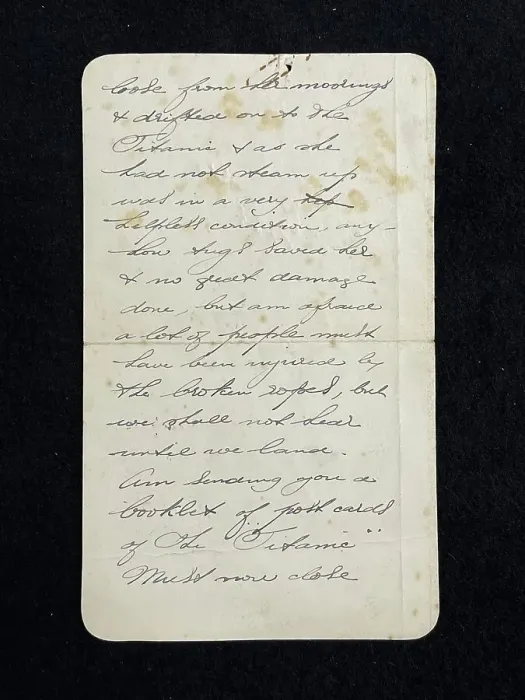 loose from her moorings
& drifted on to the
Titanic & as she
had not steam up
was in a very hep
helpless condition, any-
how tugs saved her
& no great damage
done, but am afraid
a lot of people must
have been injured by
the broken ropes, but
we shall not hear
until we land.
Am sending you a
booklet of post cards
of the "Titanic"
Must now close